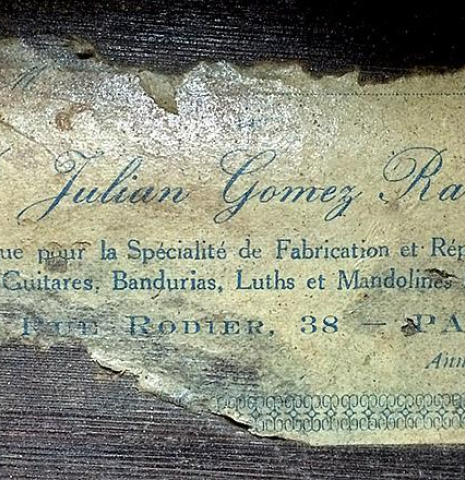 Julian Gomez Ra
ue pour la Spécialité de Fabrication et Rép
Guitares, Bandurias, Luths et Mandolines
Rue Rodier, 38 — PA
Ann